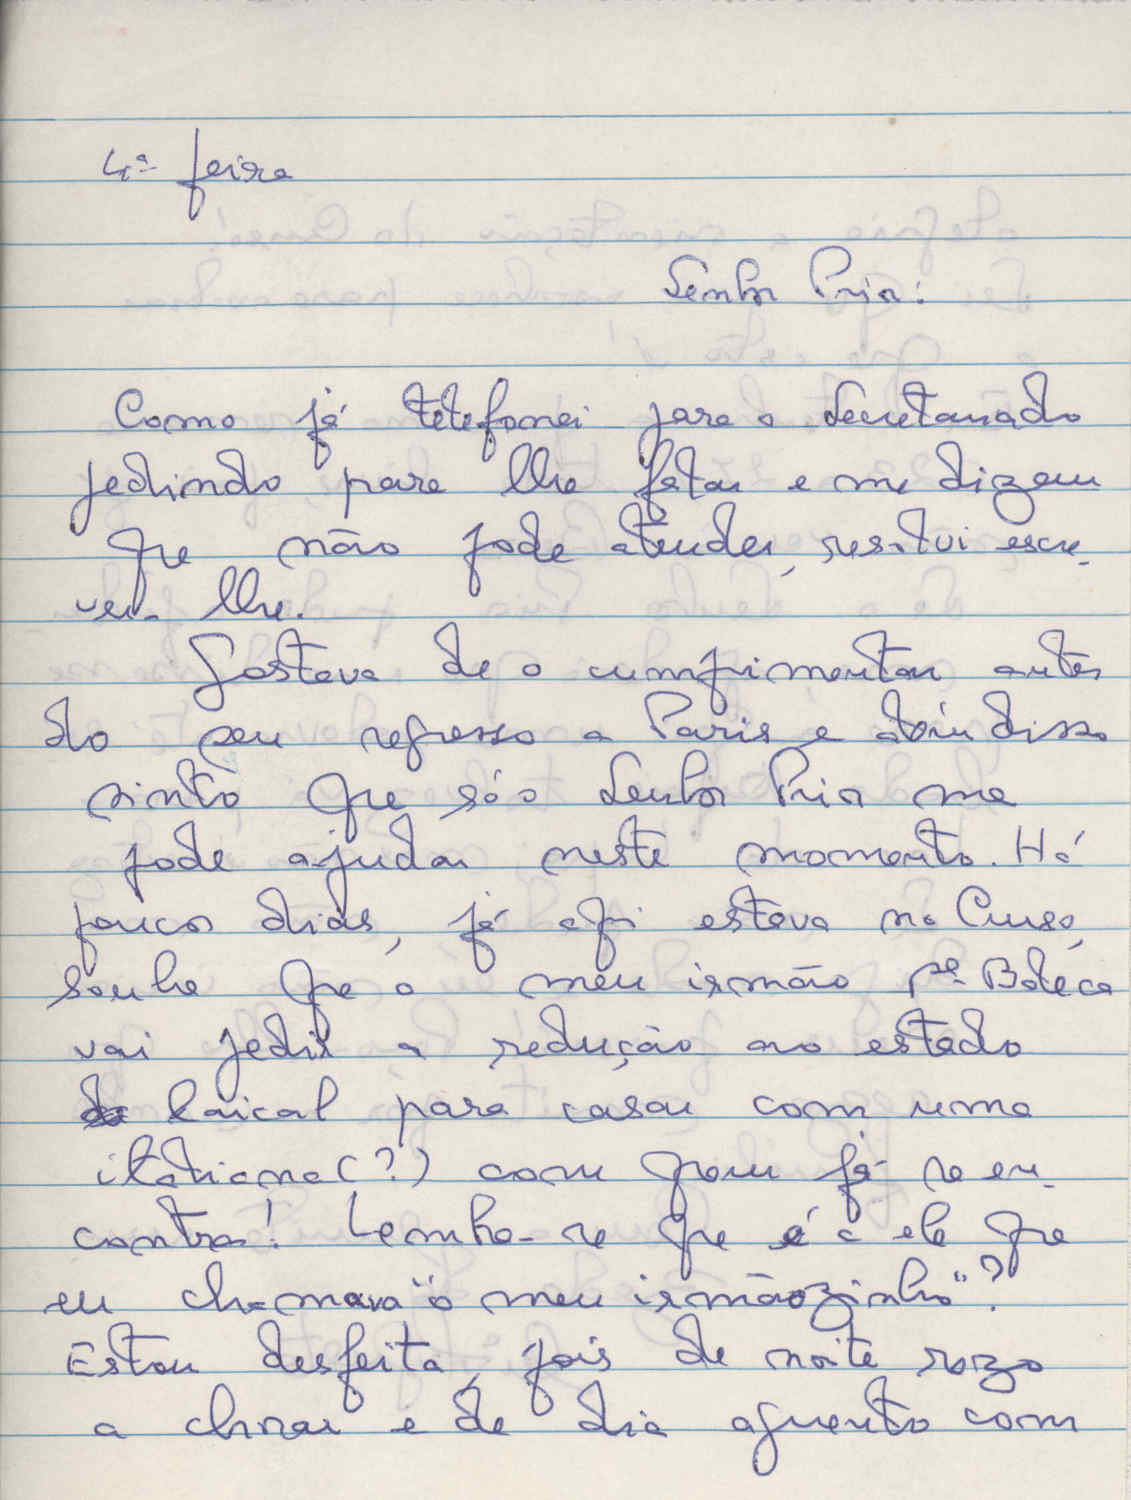 4ª feira
Senhor Prior:
Como já telefonei para o Secretariado
pedindo para lhe falar e me dizem
que não pode atender, resolvi escre-
ver-lhe.
Gostava de o cumprimentar antes
do seu regresso a Paris e além disso
sinto que só o Senhor Prior me
pode ajudar neste momento. Há
poucos dias, já aqui estava no Curso,
soube que o meu irmão Pe
vai pedir a redução ao estado
laical para casar com uma
italiana (?) com quem já se en-
contra! Lembra-se que é a ele que
eu chamava "o meu irmãozinho"?
Estou desfeita, pois de noite rezo
a chorar e de dia aguento com